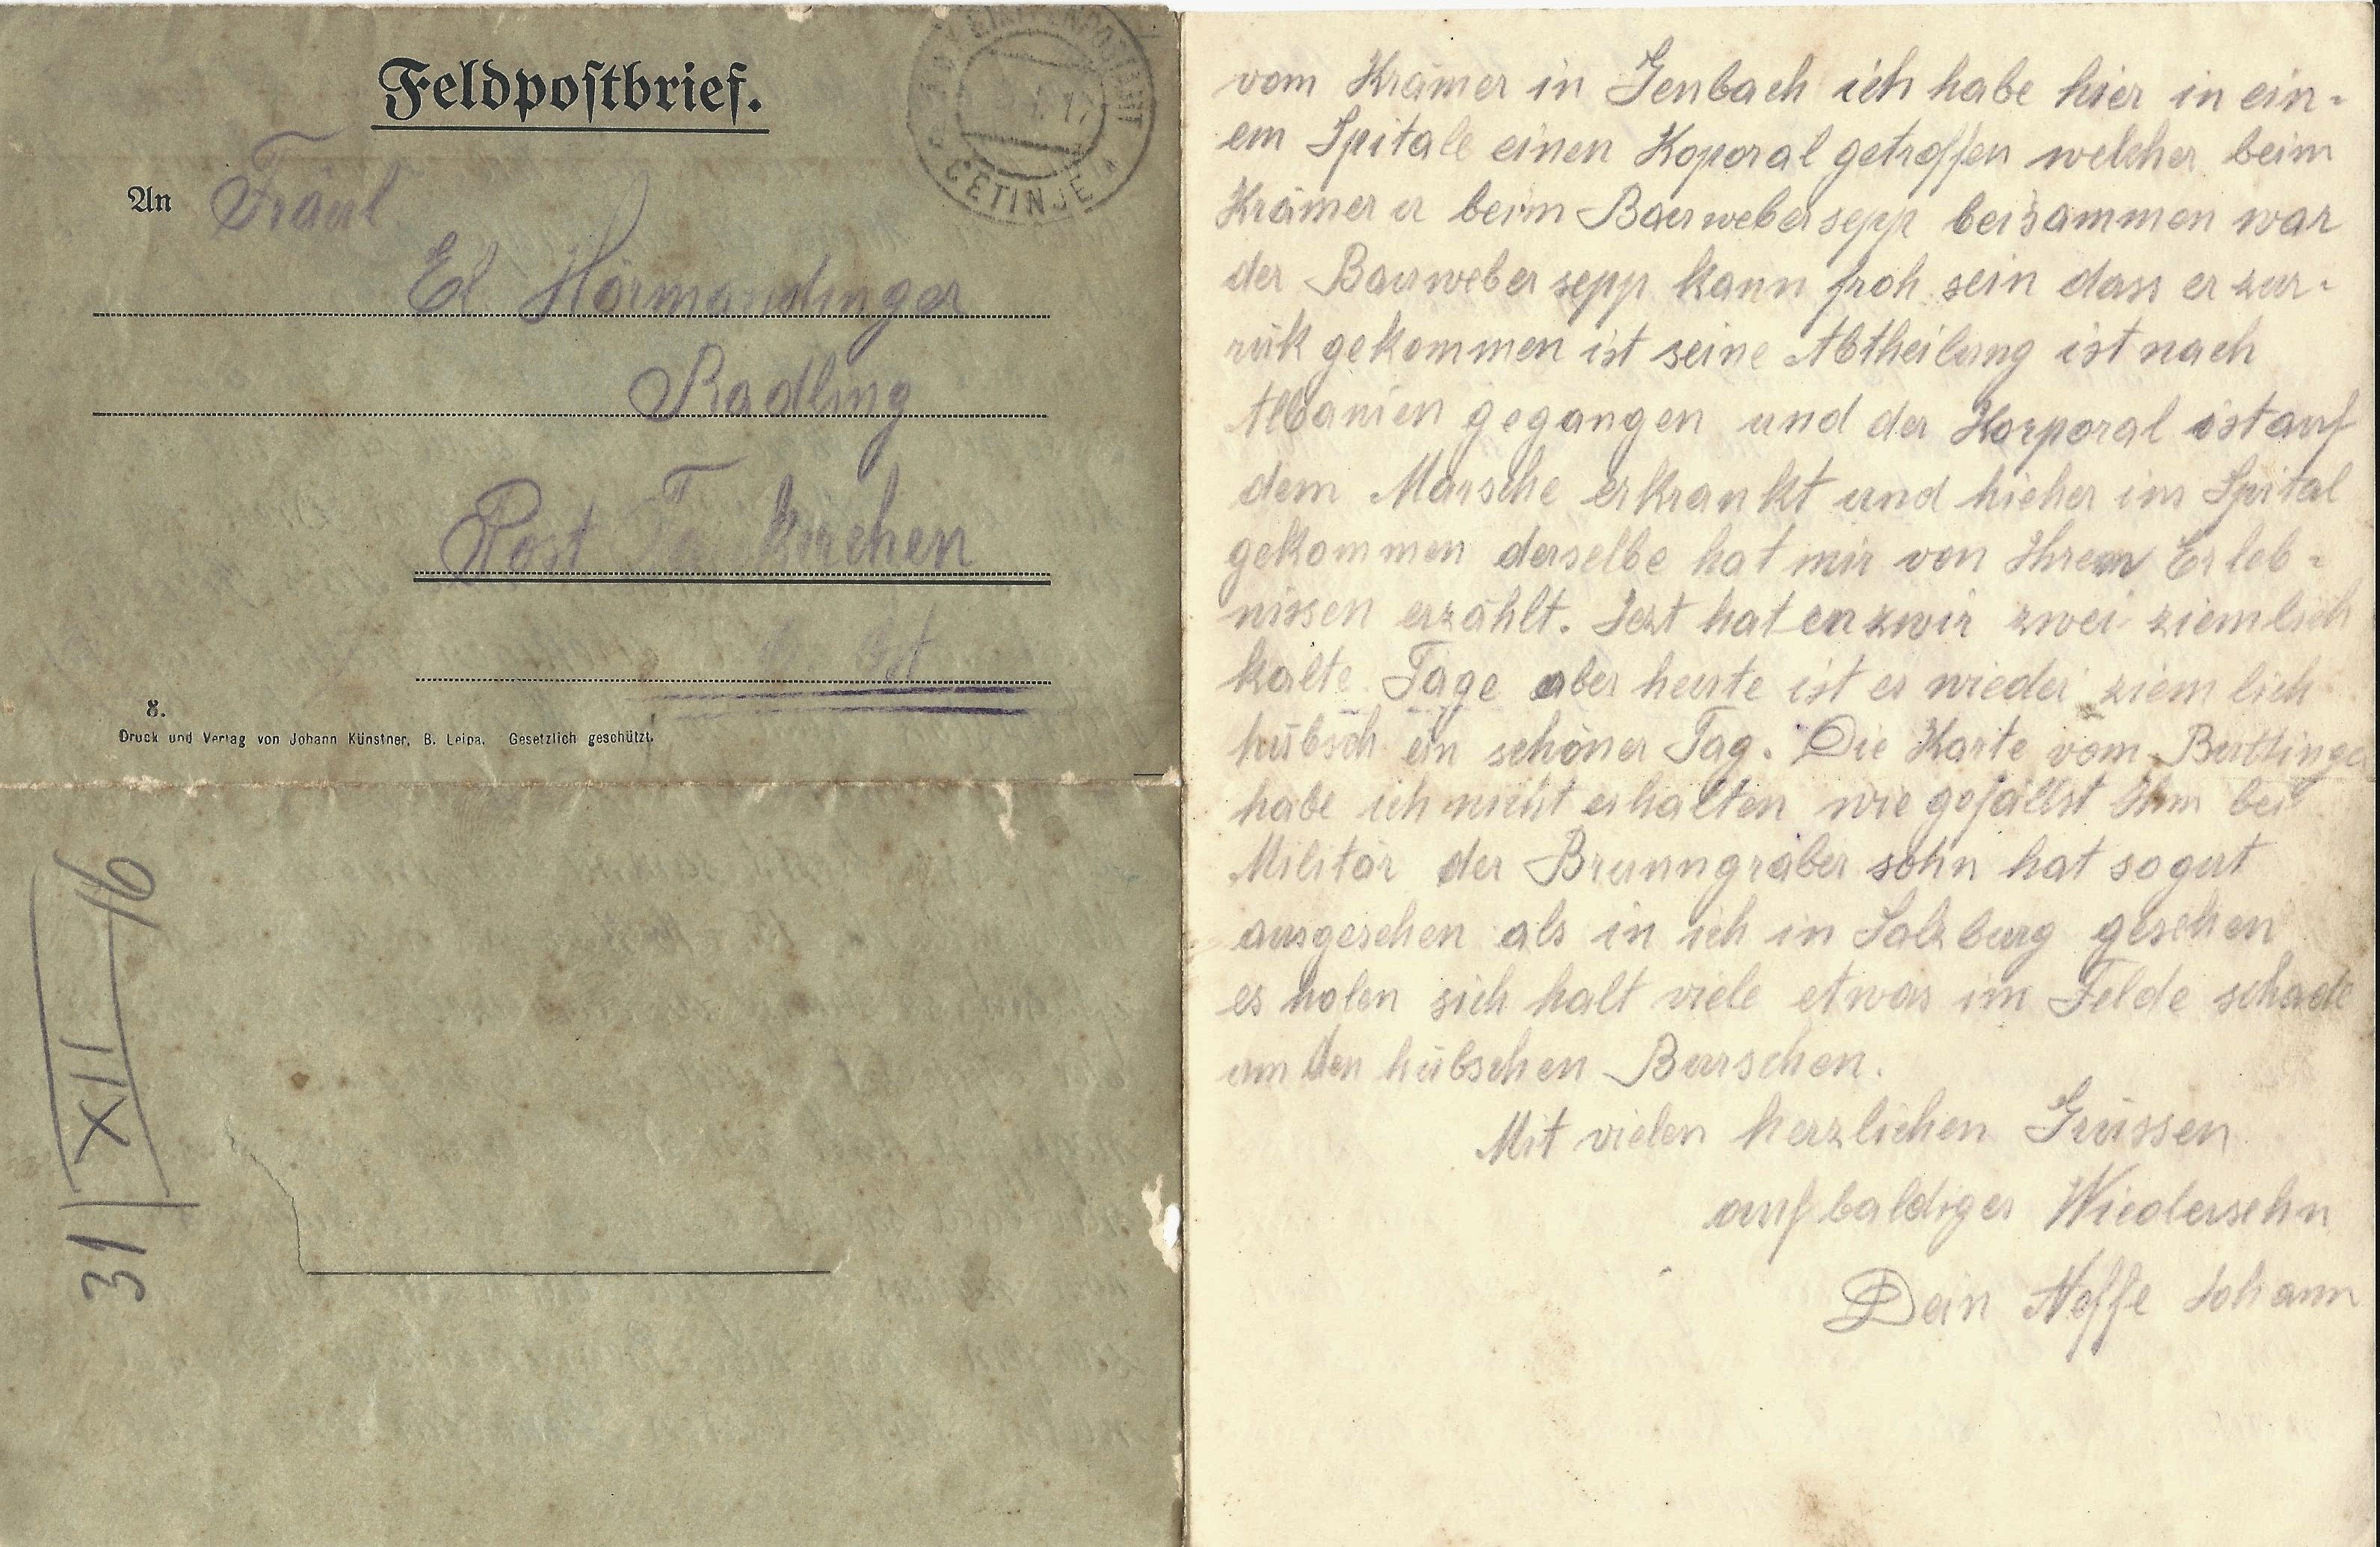 Feldpostbrief.
ETAPPENPOSTAMT
17
CETINJE
An Fräul
El Hörmandinger
Radling
Post kirchen
8.
Druck und Verlag von Johann Künstner, B. Leipa. Gesetzlich geschützt.
31 XII 16
vom Krämer in Jenbach ich habe hier in ein-
em Spitale einen Koporal getroffen welcher beim
Krämer u beim Bauwebersepp beisammen war
der Bauwebersepp kann froh sein dass er zur-
rük gekommen ist seine Abtheilung ist nach
Albanien gegangen und der Korporal ist auf
dem Marsche erkrankt und hieher ins Spital
gekommen derselbe hat mir von Ihrem Erleb-
nissen erzählt. Jezt hat zwei ziemlich
kalte Tage aber heute ist es wieder ziemlich
hübsch ein schöner Tag. Die Karte vom
habe ich nicht erhalten wie gefällst Ihm bei
Militär der Brunngräber sohn hat so gut
ausgesehen als in ich in Salzburg gesehen
es holen sich halt viele etwas im Felde schade
um den hübschen Burschen.
Mit vielen herzlichen Grüssen
auf baldiges Wiedersehn
Dein Neffe Johann